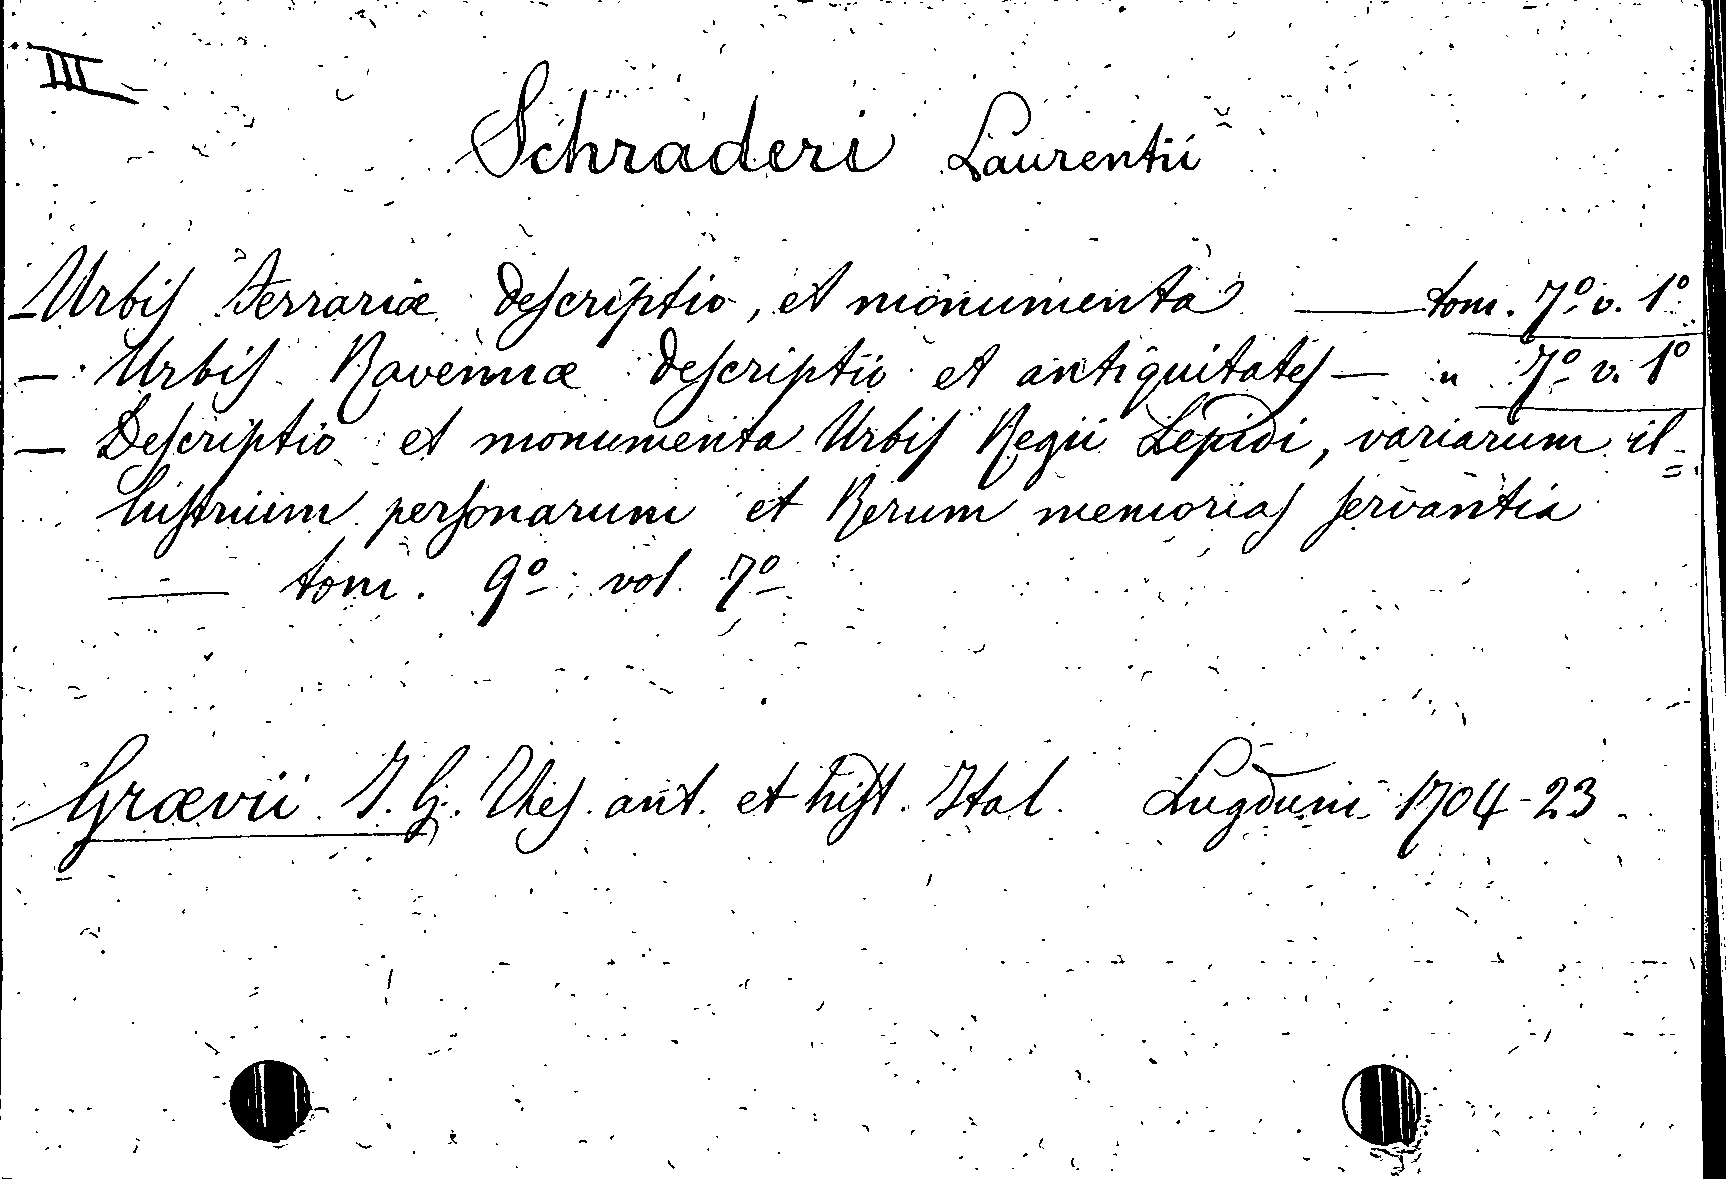 III
Schraderi Laurentii
- Urbis Ferrariæ descriptio, et monumenta — tom. 7º v. 1º
- Urbis Ravennæ descriptio et antiquitates — " 7º v. 1º
- Descriptio et monumenta Urbis Regii Lepidi, variarum il=
lustrium personarum et Rerum memorias servantia
— tom. 9º vol 7º
Grævii J. G. Thes. ant. et hist. Ital. Lugduni 1704-23